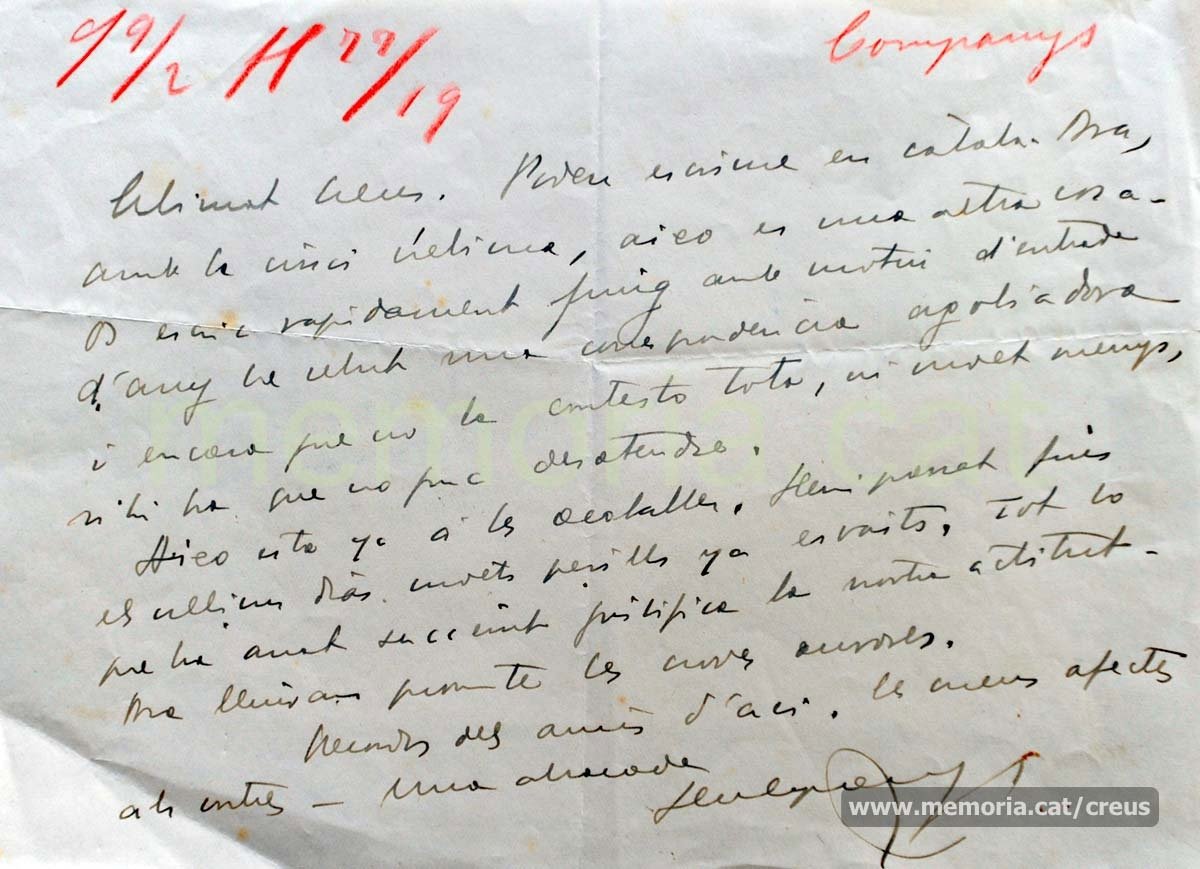 99/2 H 77/19
Companys
Estimat Creus. Podeu escriure en català. Ara,
amb la crisi última, aixo es una altra cosa.
Os escric rapidament puig amb motiu d'entrada
d'any he rebut una correspondencia agobiadora
i encara que no la contesto tota, ni molt menys,
n'hi ha que no puc desatendre.
Aixo esta ya á les acaballes. Hem passat fins
els ultims dias molts perills ya esvaits. Tot lo
que ha anat succeint justifica la nostra actitut.
Ara les noves aurores.
Recordos dels amics d'aci. els meus afectes
als vostres — una abraçada
memoria.cat
www.memoria.cat/creus